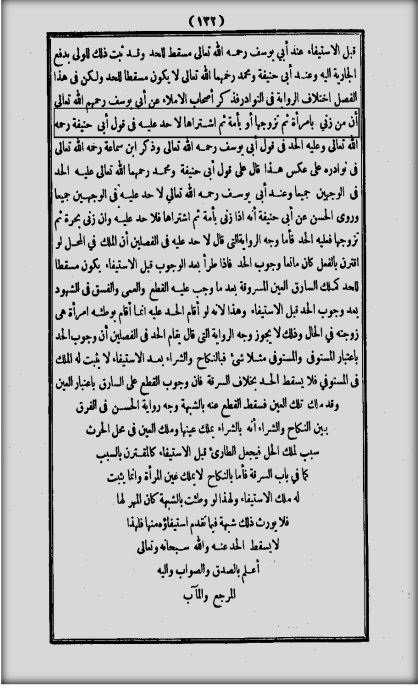 (١٣٢)
قبل الاستيفاء عند أبي يوسف رحمه الله تعالى مسقط للحد وقد ثبت ذلك للولى بدفع
الجارية اليه وعند أبى حنيفة ومحمد رحمهما الله تعالى لا يكون مسقطا للحد ولكن فى هذا
الفصل اختلاف الرواية فى النوادر فذكر أصحاب الاملاء عن أبى يوسف رحمهم الله تعالى
أن من زني بامرأة ثم تزوجها أو بأمة ثم اشتراها لا حد عليه فى قول أبى حنيفة رحمه
الله تعالى وعليه الحد فى قول أبى يوسف رحمه الله تعالى وذكر ابن سماعة رحمه الله تعالى
فى نوادره على عكس هذا قال على قول أبى حنيفة ومحمد رحمهما الله تعالى عليه الحد
فى الوجهين جميعا وعند أبى يوسف رحمه الله تعالي لا حد عليه فى الوجهين جميعا
وروى الحسن عن أبى حنيفة أنه اذا زنى بأمة ثم اشتراها فلا حد عليه وان زنى بحرة ثم
تزوجها فعليه الحد فأما وجه الرواية التى قال لا حد عليه فى الفصلين أن الملك في المحل لو
اقترن بالفعل كان مانعا وجوب الحد فاذا طرأ بعد الوجوب قبل الاستيفاء يكون مسقطا
للحد كملك السارق العين المسروقة بعد ما وجب عليه القطع والعمى والفسق فى الشهود
بعد وجوب الحد قبل الاستيفاء وهذا لانه لو أقام الحد عليه انما أقام بوطئه امرأة هى
زوجته في الحال وذلك لا يجوز وجه الرواية التى قال يقام الحد فى الفصلين أن وجوب الحد
باعتبار المستوفى والمستوفى متلاشئ فبالنكاح والشراء بعد الاستيفاء لا يثبت له الملك
فى المستوفي فلا يسقط الحد بخلاف السرقة فان وجوب القطع على السارق باعتبار العين
وقد ملك تلك العين فسقط القطع عنه بالشبهة وجه رواية الحسن فى الفرق
بين النكاح والشراء أنه بالشراء يملك عينها وملك العين فى محل الحرث
سبب لملك الحل فيجعل الطارئ قبل الاستيفاء كالمقترن بالسبب
كما في باب السرقة فأما بالنكاح لا يملك عين المرأة وانما يثبت
له ملك الاستيفاء ولهذا لو وطئت بالشبهة كان المهر لها
فلا يورث ذلك شبهة فيما تقدم استيفاؤه منها فلهذا
لا يسقط الحد عنه والله سبحانه وتعالى
أعلم بالصدق والصواب واليه
المرجع والمآب